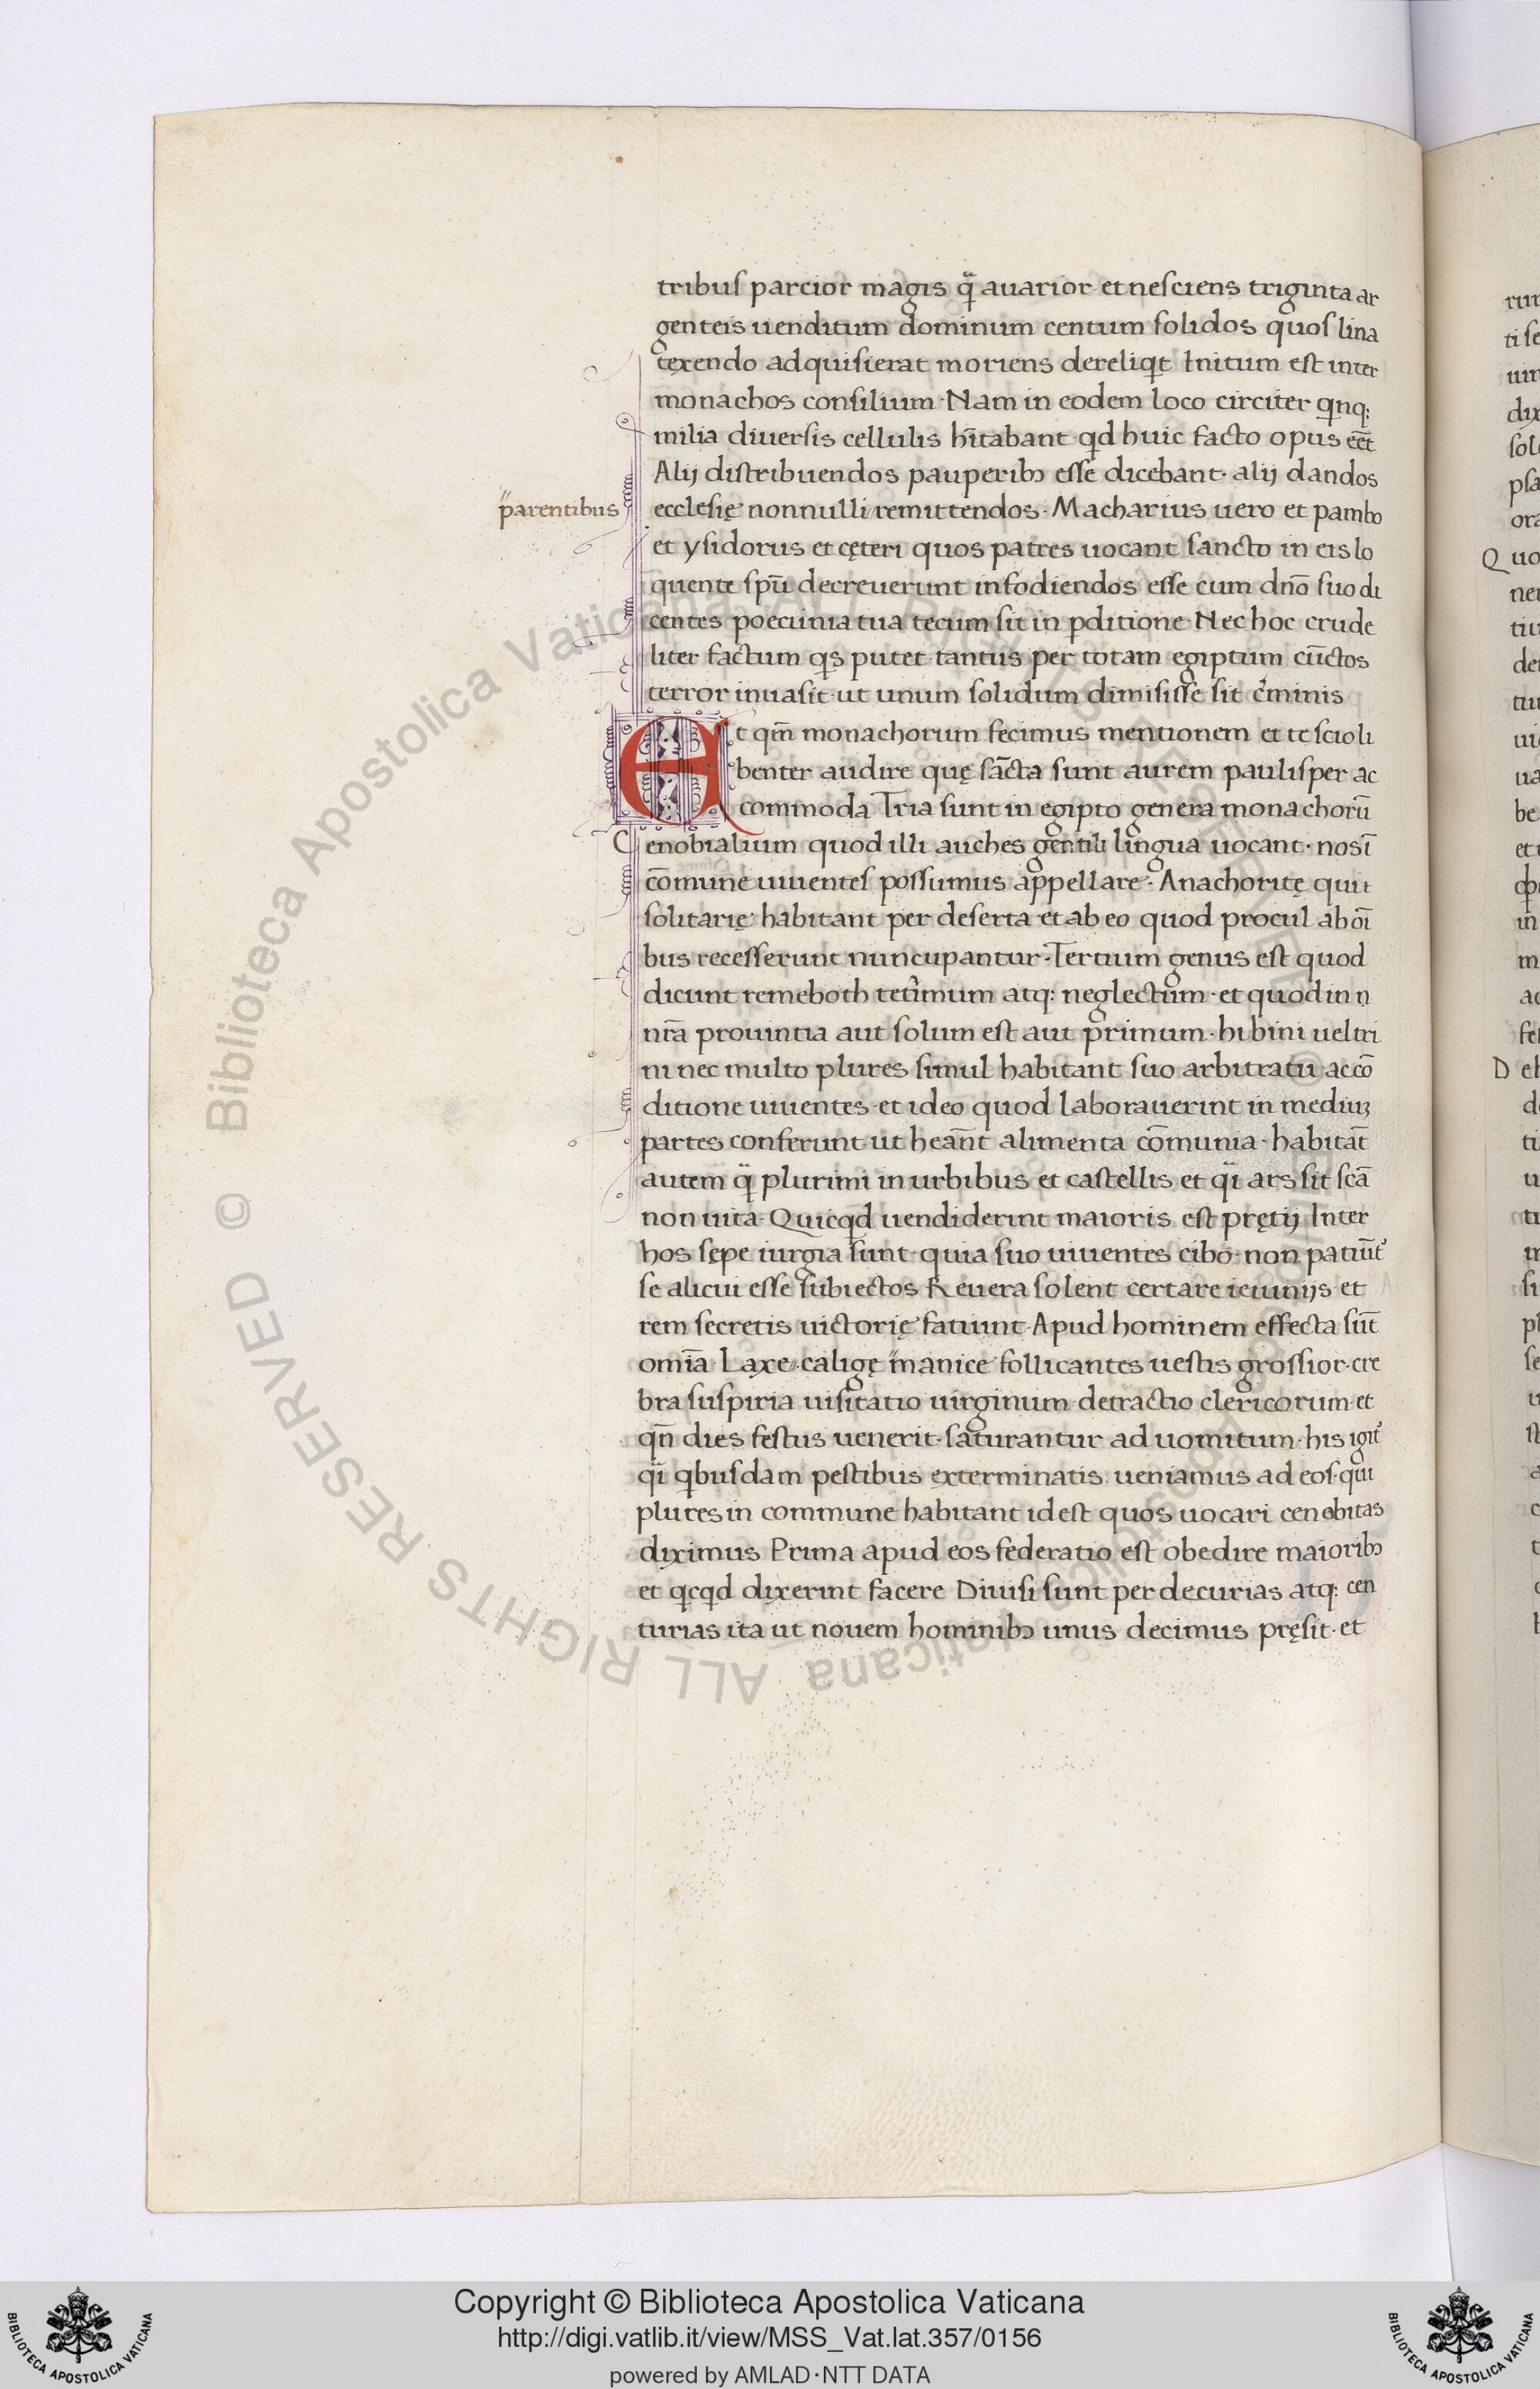 tribus parcior magis q̄ auarior et nesciens triginta ar
genteis uenditum dominum centum solidos quos lina
texendo adquisierat moriens dereliqt Initum est inter
monachos consilium · Nam in eodem loco circiter qnq;
milia diuersis cellulis hītabant · qd huic facto opus eēt
Alij distribuendos pauperibꝫ esse dicebant · alij dandos
parentibus
ecclesię nonnulli remittendos · Macharius uero et pambo
et ysidorus et cęteri quos patres uocant sancto in eis lo
quente spū decreuerunt infodiendos esse cum dnō suo di
centes poecunia tua tecum sit in pditione · Nec hoc crude
liter factum qs putet · tantus per totam egiptum cūctos
terror inuasit · ut unum solidum dimisisse sit c̄minis
Et qm̄ monachorum fecimus mentionem et te scio li
benter audire quę sāncta sunt aurem paulisper ac
commoda Tria sunt in egipto genera monachorū
Cenobialium quod illi auches gentili lingua uocant · nos ī
cōmune uiuentes possumus appellare · Anachoritę qui
solitarię habitant per deserta et ab eo quod procul ab oī
bus recesserunt nuncupantur · Tertium genus est quod
dicunt remeboth tetimum atq; neglectum · et quod in n
nrā prouintia aut solum est aut primum · hi bini uel tri
ni nec multo plures simul habitant suo arbitratu ac cō
ditione uiuentes · et ideo quod laborauerint in mediuꝫ
partes conferunt · ut heānt alimenta cōmunia · habitāt
autem q̄ plurimi in urbibus et castellis et qī ars sit scā
non uita · Quicqd uendiderint maioris est prętij Inter
hos sępe iurgia sunt · quia suo uiuentes cibo · non patiūt᾽
se alicui esse subiectos Reuera solent certare ieiunijs et
rem secretis uictorię fatiunt · Apud hominem effecta sūt
omīa Laxe caligę manice follicantes uestis grossior · cre
bra suspiria uisitatio uirginum detractio clericorum · et
qn̄ dies festus uenerit · saturantur ad uomitum · his igit᾽
qī qbusdam pestibus exterminatis · ueniamus ad eos · qui
plures in commune habitant id est quos uocari cenobitas
diximus Prima apud eos federatio est obedire maioribꝫ
et qcqd dixerint facere Diuisi sunt per decurias atq; cen
turias ita ut nouem hominibꝫ unus decimus pręsit · et
Copyright © Biblioteca Apostolica Vaticana
http://digi.vatlib.it/view/MSS_Vat.lat.357/0156
powered by AMLAD·NTT DATA